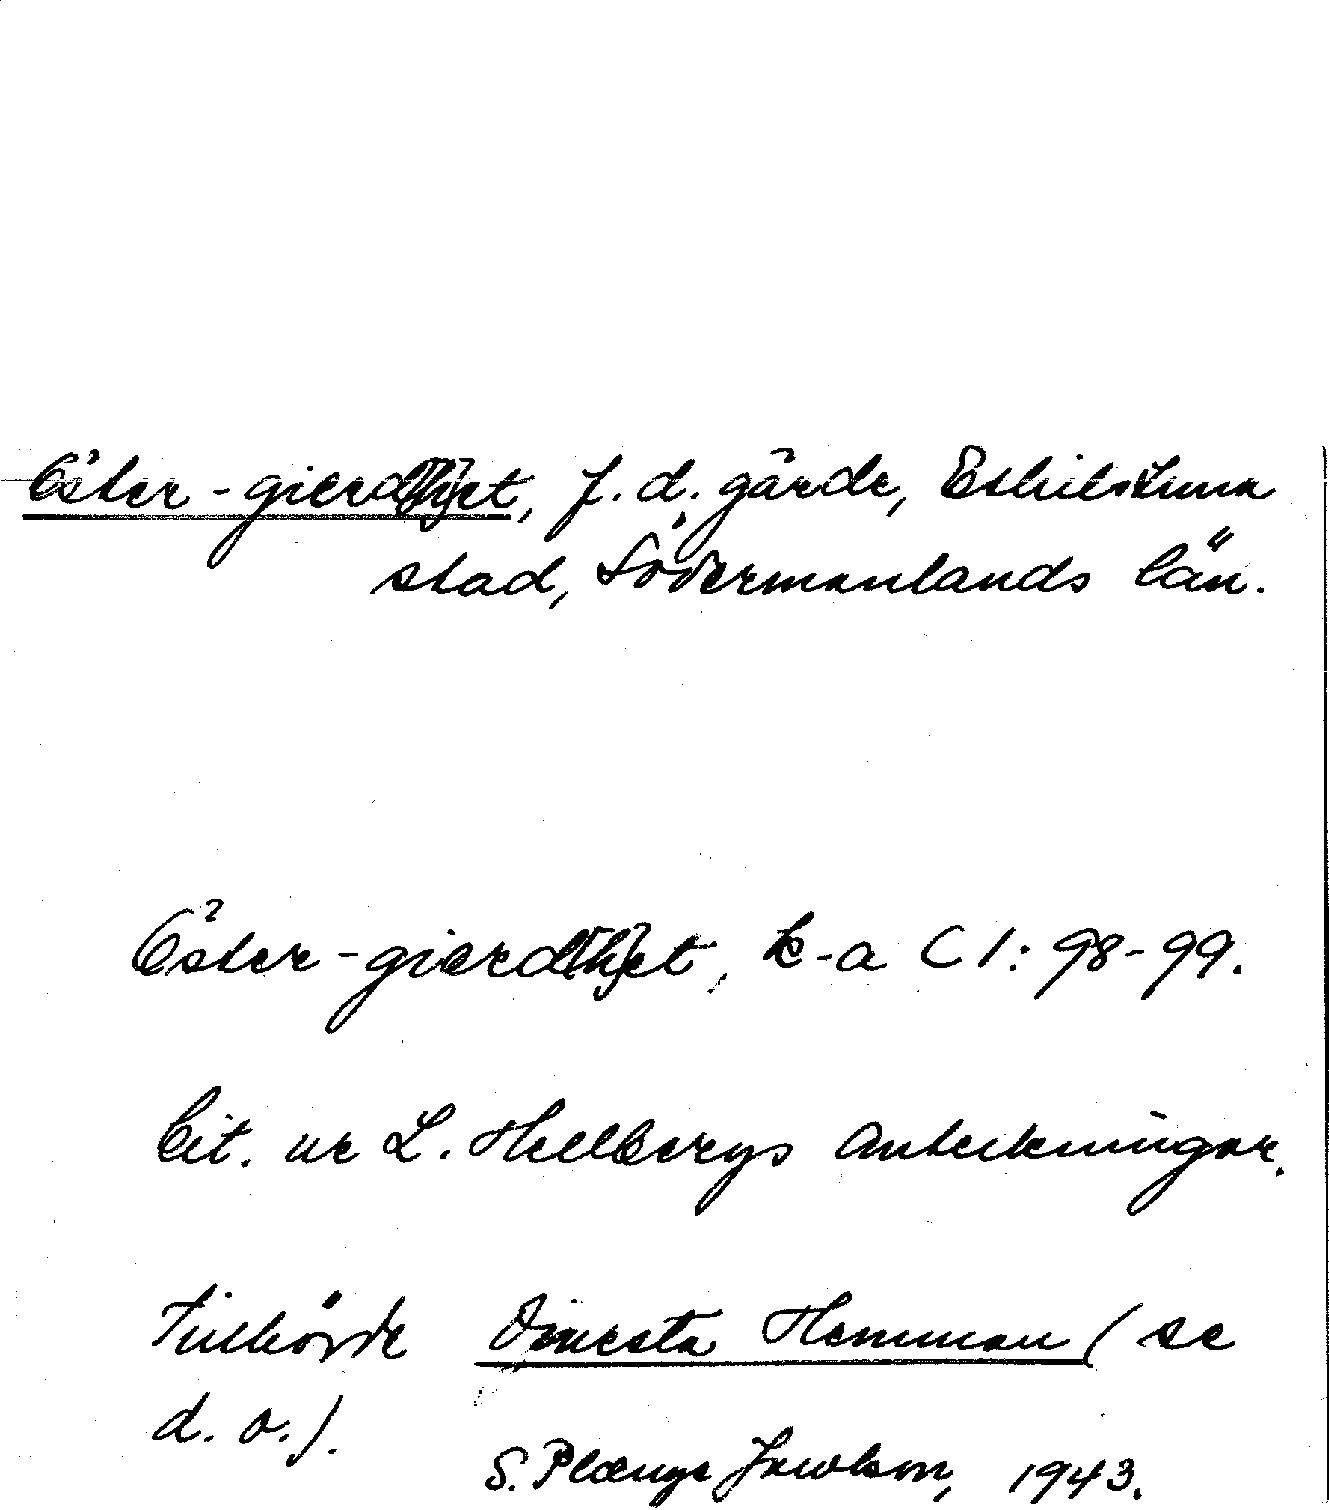 Öster-gierd[h]et, f. d. gärde, Eskilstuna
stad, Södermanlands län.
Öster-gierd[h]et, k-a C 1: 98-99.
Cit. ur L. Hellbergs anteckningar.
Tillhörde Hemman (se
d. o.).
S. Jacobson, 1943.